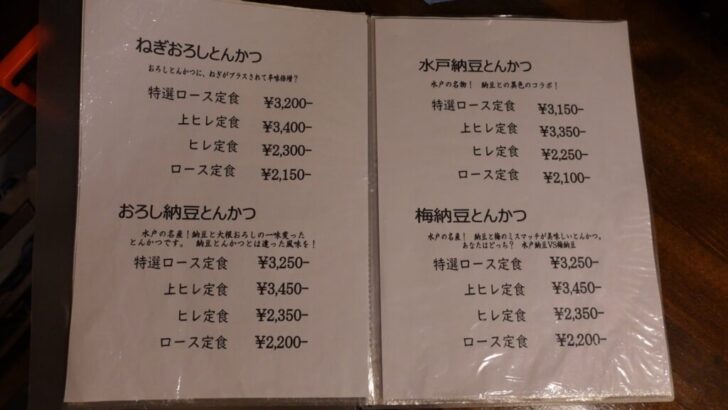 ねぎおろしとんかつ
おろしとんかつに、ねぎがプラスされて辛味倍増?
特選ロース定食 ¥3,200-
上ヒレ定食 ¥3,400-
ヒレ定食 ¥2,300-
ロース定食 ¥2,150-
おろし納豆とんかつ
水戸の名産!納豆と大根おろしの一味変った
とんかつです。 納豆とんかつとは違った風味を!
特選ロース定食 ¥3,250-
上ヒレ定食 ¥3,450-
ヒレ定食 ¥2,350-
ロース定食 ¥2,200-
水戸納豆とんかつ
水戸の名物! 納豆との異色のコラボ!
特選ロース定食 ¥3,150-
上ヒレ定食 ¥3,350-
ヒレ定食 ¥2,250-
ロース定食 ¥2,100-
梅納豆とんかつ
水戸の名産! 納豆と梅のミスマッチが美味しいとんかつ。
あなたはどっち? 水戸納豆VS梅納豆
特選ロース定食 ¥3,250-
上ヒレ定食 ¥3,450-
ヒレ定食 ¥2,350-
ロース定食 ¥2,200-